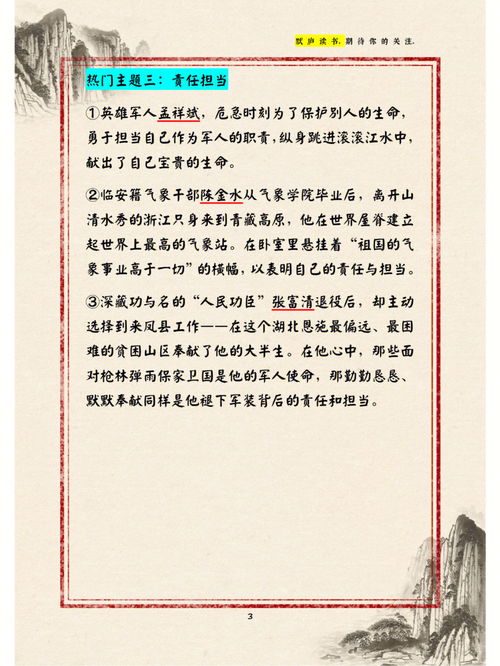 默庐读书,期待你的关注.
热门主题三：责任担当
①英雄军人孟祥斌，危急时刻为了保护别人的生命，
勇于担当自己作为军人的职责，纵身跳进滚滚江水中，
献出了自己宝贵的生命。
②临安籍气象干部陈金水从气象学院毕业后，离开山
清水秀的浙江只身来到青藏高原，他在世界屋脊建立
起世界上最高的气象站。在卧室里悬挂着“祖国的气
象事业高于一切”的横幅，以表明自己的责任与担当。
③深藏功与名的“人民功臣”张富清退役后，却主动
选择到来凤县工作——在这个湖北恩施最偏远、最困
难的贫困山区奉献了他的大半生。在他心中，那些面
对枪林弹雨保家卫国是他的军人使命，那勤勤恳恳、
默默奉献同样是他褪下军装背后的责任和担当。
3